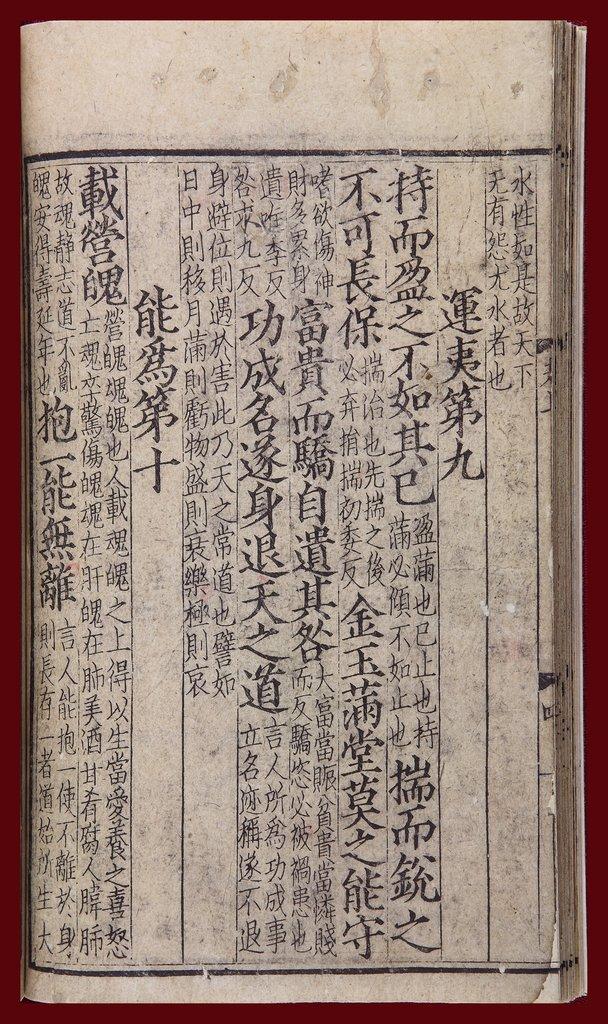 水性如是故天下
无有怨尤水者也
運夷第九
持而盈之不如其已
盈滿也已止也持
滿必傾不如止也
揣而銳之
不可長保
揣治也先揣之後
必弃捐揣初委反
金玉滿堂莫之能守
嗜欲傷神
財多累身
富貴而驕自遺其咎
大富當賑貧貴當憐賤
而反驕恣必被禍患也
遺唯季反
咎求九反
功成名遂身退天之道
言人所為功成事
立名迹稱遂不退
身避位則遇於害此乃天之常道也譬如
日中則移月滿則虧物盛則衰樂極則哀
能爲第十
載營魄
營魄魂魄也人載魂魄之上得以生當愛養之喜怒
亡魂卒驚傷魄魂在肝魄在肺美酒甘肴腐人脾肺
故魂静志道不亂
魄安得壽延年也
抱一能無離
言人能抱一使不離於身
則長存一者道始所生大